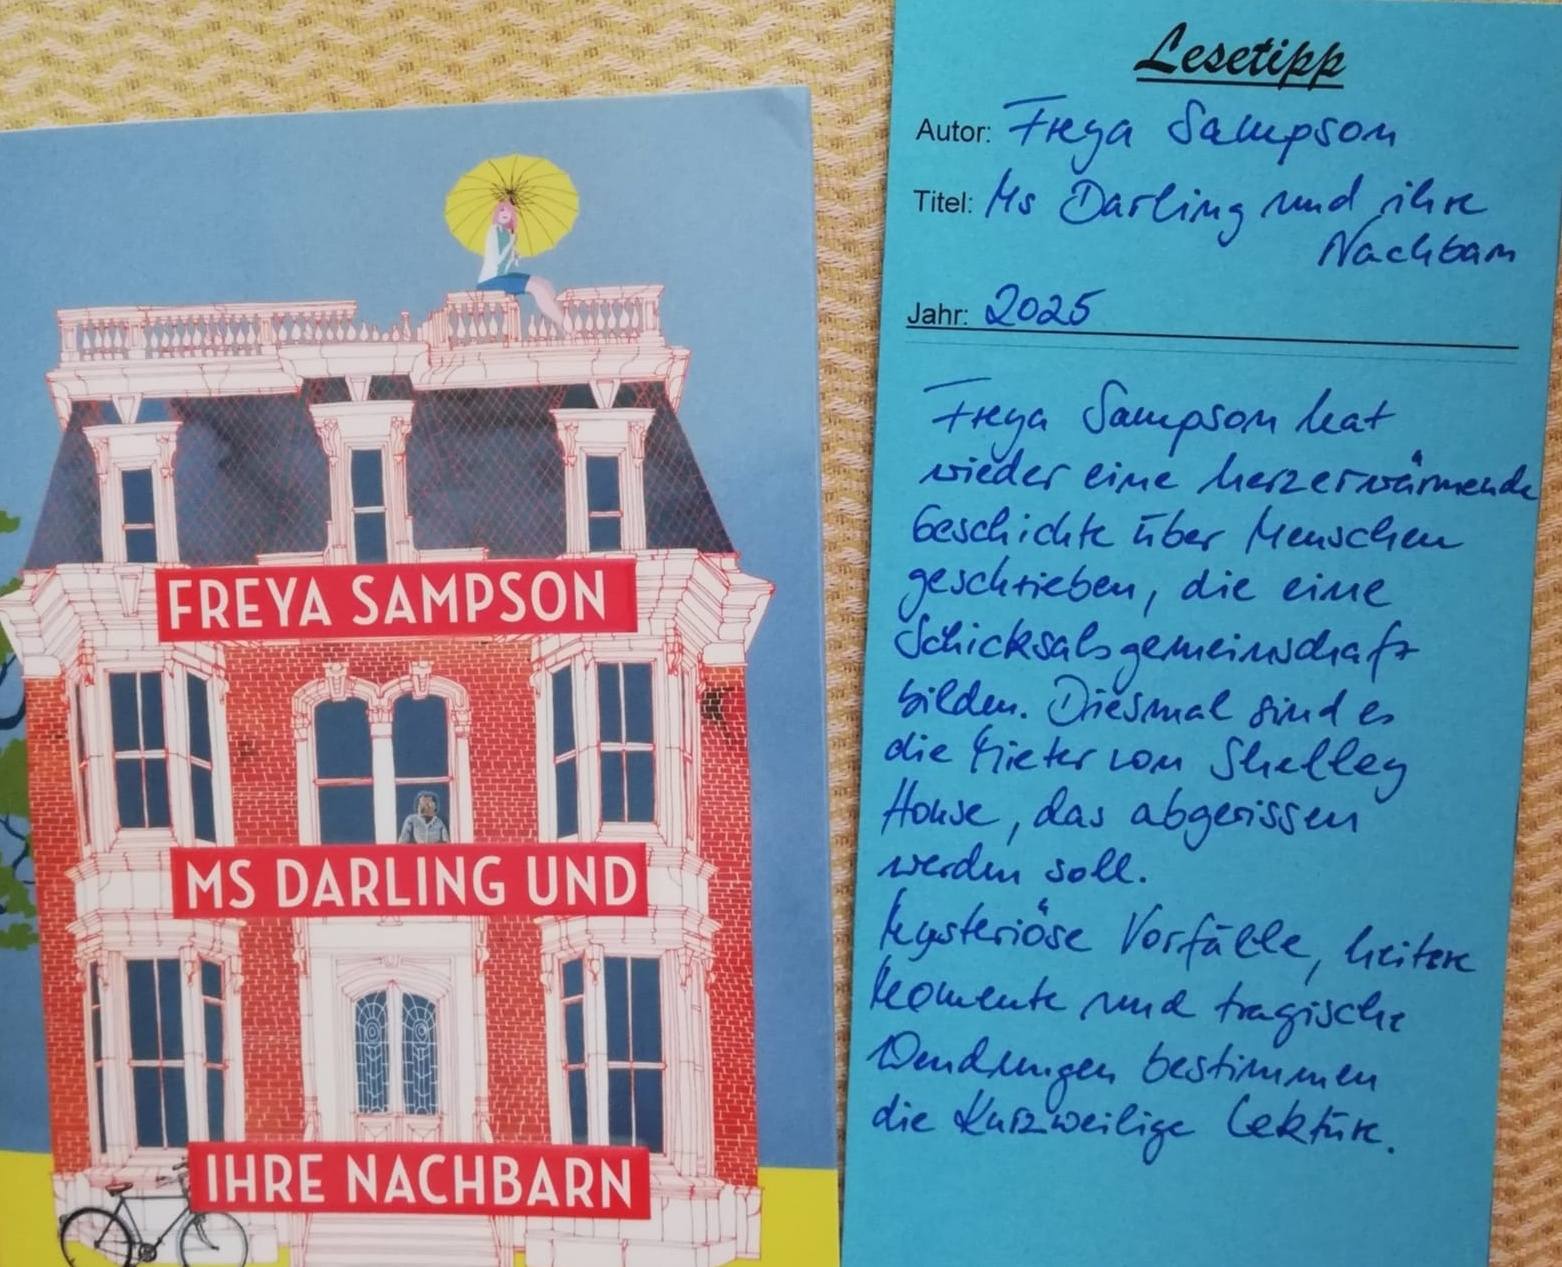 FREYA SAMPSON
MS DARLING UND
IHRE NACHBARN
Lesetipp
Autor: Freya Sampson
Titel: Ms Darling und ihre
Nachbarn
Jahr: 2025
Freya Sampson hat
wieder eine herzerwärmende
Geschichte über Menschen
geschrieben, die eine
Schicksalsgemeinschaft
bilden. Diesmal sind es
die Mieter von Shelley
House, das abgerissen
werden soll.
Mysteriöse Vorfälle, heitere
Momente und tragische
Wendungen bestimmen
die kurzweilige Lektüre.